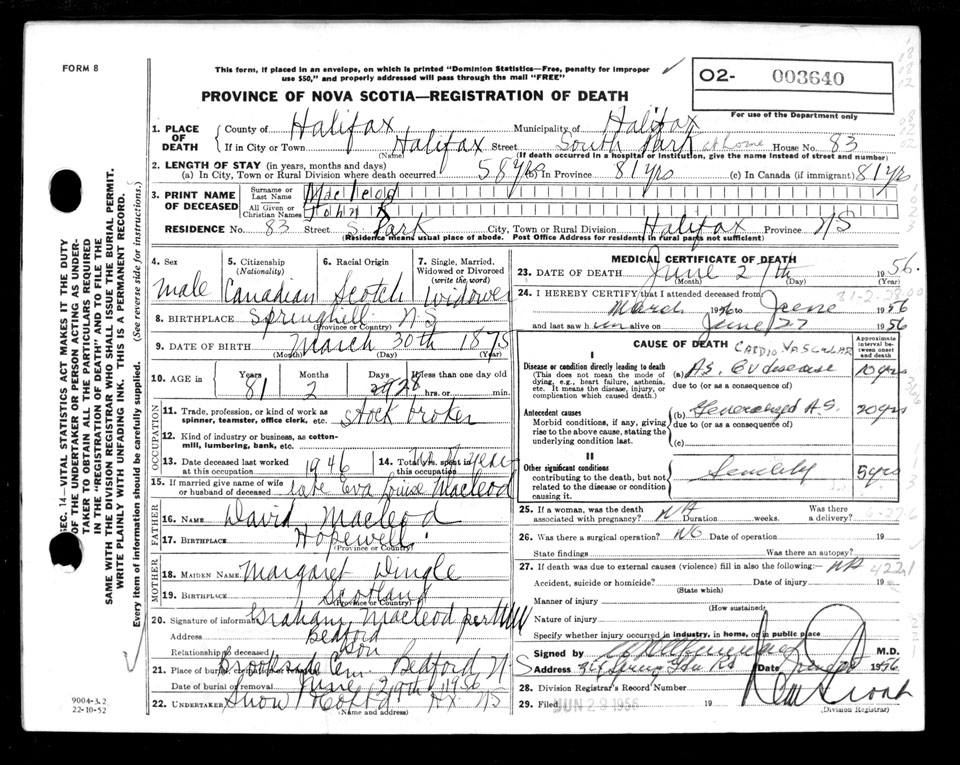 FORM 8
This form, if placed in an envelope, on which is printed "Dominion Statistics—Free, penalty for improper
use $50," and properly addressed will pass through the mail "FREE"
O2- 003640
For use of the Department only
PROVINCE OF NOVA SCOTIA—REGISTRATION OF DEATH
1. PLACE OF DEATH { County of Halifax Municipality of Halifax
If in City or Town Halifax Street South Park at home House No. 83
(Name) (If death occurred in a hospital or institution, give the name instead of street and number)
2. LENGTH OF STAY (in years, months and days)
(a) In City, Town or Rural Division where death occurred 58 yrs (b) in Province 81 yrs (c) In Canada (if immigrant) 81 yrs
3. PRINT NAME OF DECEASED { Surname or Last Name Macleod
All Given or Christian Names John K
RESIDENCE No. 83 Street S. Park City, Town or Rural Division Halifax Province NS
(Residence means usual place of abode. Post Office Address for residents in rural parts not sufficient)
4. Sex male
5. Citizenship (Nationality) Canadian
6. Racial Origin Scotch
7. Single, Married, Widowed or Divorced (write the word) widower
8. BIRTHPLACE Springhill NS
(Province or Country)
9. DATE OF BIRTH March 30th 1875
(Month) (Day) (Year)
10. AGE in { Years 81 Months 2 Days 28 If less than one day old hrs. or min.
OCCUPATION
11. Trade, profession, or kind of work as spinner, teamster, office clerk, etc. stock broker
12. Kind of industry or business, as cotton-mill, lumbering, bank, etc.
13. Date deceased last worked at this occupation 1946
14. Total yrs. spent in this occupation
15. If married give name of wife or husband of deceased late Eva Louise Macleod
FATHER
16. NAME David Macleod
17. BIRTHPLACE Hopewell
(Province or Country)
MOTHER
18. MAIDEN NAME Margaret Dingle
19. BIRTHPLACE Scotland
(Province or Country)
20. Signature of informant Graham Macleod per
Address Bedford
Relationship to deceased Son
21. Place of burial, cremation or removal Brookside Cem Bedford N
Date of burial or removal June 29th 1956
22. UNDERTAKER Snow Hx NS
(Name and address)
MEDICAL CERTIFICATE OF DEATH
23. DATE OF DEATH June 27th 1956.
(Month) (Day) (Year)
24. I HEREBY CERTIFY that I attended deceased from
March 1956 to June 1956
and last saw him alive on June 27 1956
CAUSE OF DEATH CARDIO VASCULAR
Approximate interval between onset and death
I
Disease or condition directly leading to death
(This does not mean the mode of dying, e.g., heart failure, asthenia, etc. It means the disease, injury, or complication which caused death.)
(a) A.S. CV disease 10 yrs
due to (or as a consequence of)
Antecedent causes
Morbid conditions, if any, giving rise to the above cause, stating the underlying condition last.
(b) Generalized A.S. 20 yrs
due to (or as a consequence of)
(c)
II
Other significant conditions
contributing to the death, but not related to the disease or condition causing it.
Senility 5 yrs
25. If a woman, was the death associated with pregnancy? NA Duration weeks. Was there a delivery?
26. Was there a surgical operation? NO Date of operation 19
State findings Was there an autopsy?
27. If death was due to external causes (violence) fill in also the following:— NA 4221
Accident, suicide or homicide? Date of injury 19
(State which)
Manner of injury
(How sustained)
Nature of injury
Specify whether injury occurred in industry, in home, or in public place
Signed by M.D.
Address Spring Gdn Rd Date 1956
28. Division Registrar's Record Number
29. Filed JUN 29 1956 19
(Division Registrar)
SEC. 14—VITAL STATISTICS ACT MAKES IT THE DUTY
OF THE UNDERTAKER OR PERSON ACTING AS UNDER-
TAKER TO OBTAIN ALL THE PARTICULARS REQUIRED
IN THE "REGISTRATION OF DEATH" AND TO FILE THE
SAME WITH THE DIVISION REGISTRAR WHO SHALL ISSUE THE BURIAL PERMIT.
WRITE PLAINLY WITH UNFADING INK. THIS IS A PERMANENT RECORD.
Every item of information should be carefully supplied. (See reverse side for instructions.)
9004-3.2
22-10-52